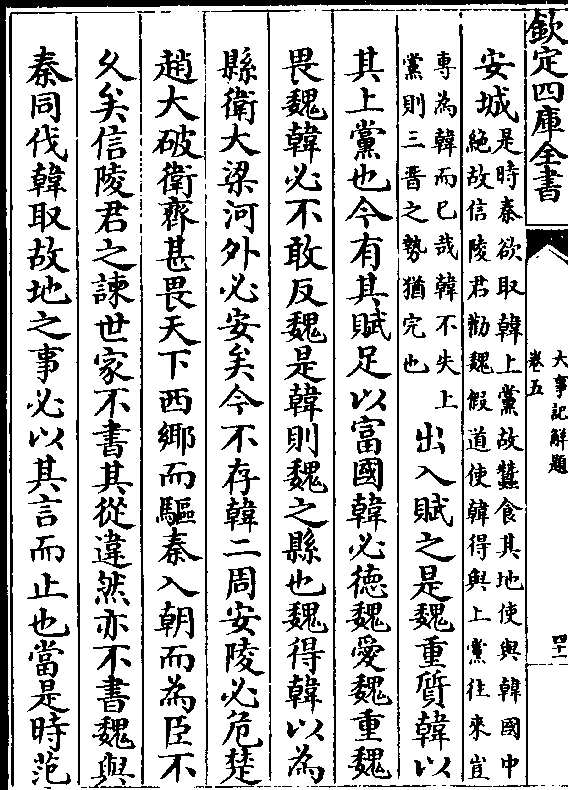 欽定四庫全書
大事記解題
卷五
四十一
安城是時秦欲取韓上黨故蠶食其地使與韓國中
絶故信陵君勸魏假道使韓得與上黨往來豈
專為韓而已哉韓不失上
黨則三晉之勢猶完也
出入賦之是魏重質韓以
其上黨也今有其賦足以富國韓必德魏愛魏重魏
畏魏韓必不敢反魏是韓則魏之縣也魏得韓以為
縣衛大梁河外必安矣今不存韓二周安陵必危楚
趙大破衛齊甚畏天下西鄉而驅秦入朝而為臣不
久矣信陵君之諫世家不書其從違然亦不書魏與
秦同伐韓取故地之事必以其言而止也當是時范